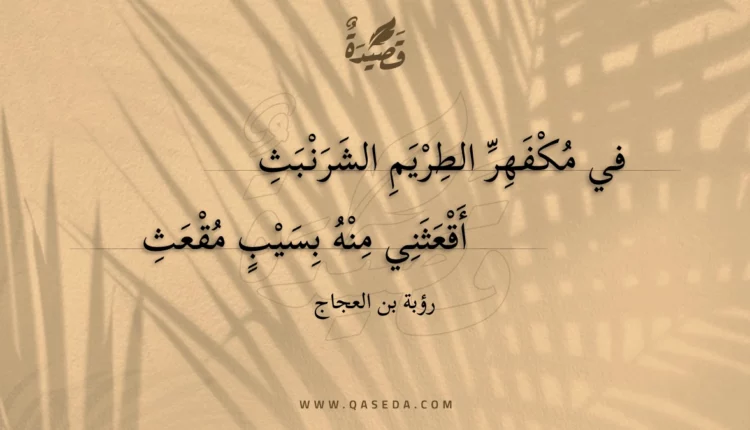 قَصِيدَةٌ
في مُكْفَهِرِّ الطِرْيَمِ الشَرَنْبَثِ
أَقْعَثَنِي مِنْهُ بِسَيْبٍ مُقْعَثِ
رؤبة بن العجاج
WWW.QASEDA.COM